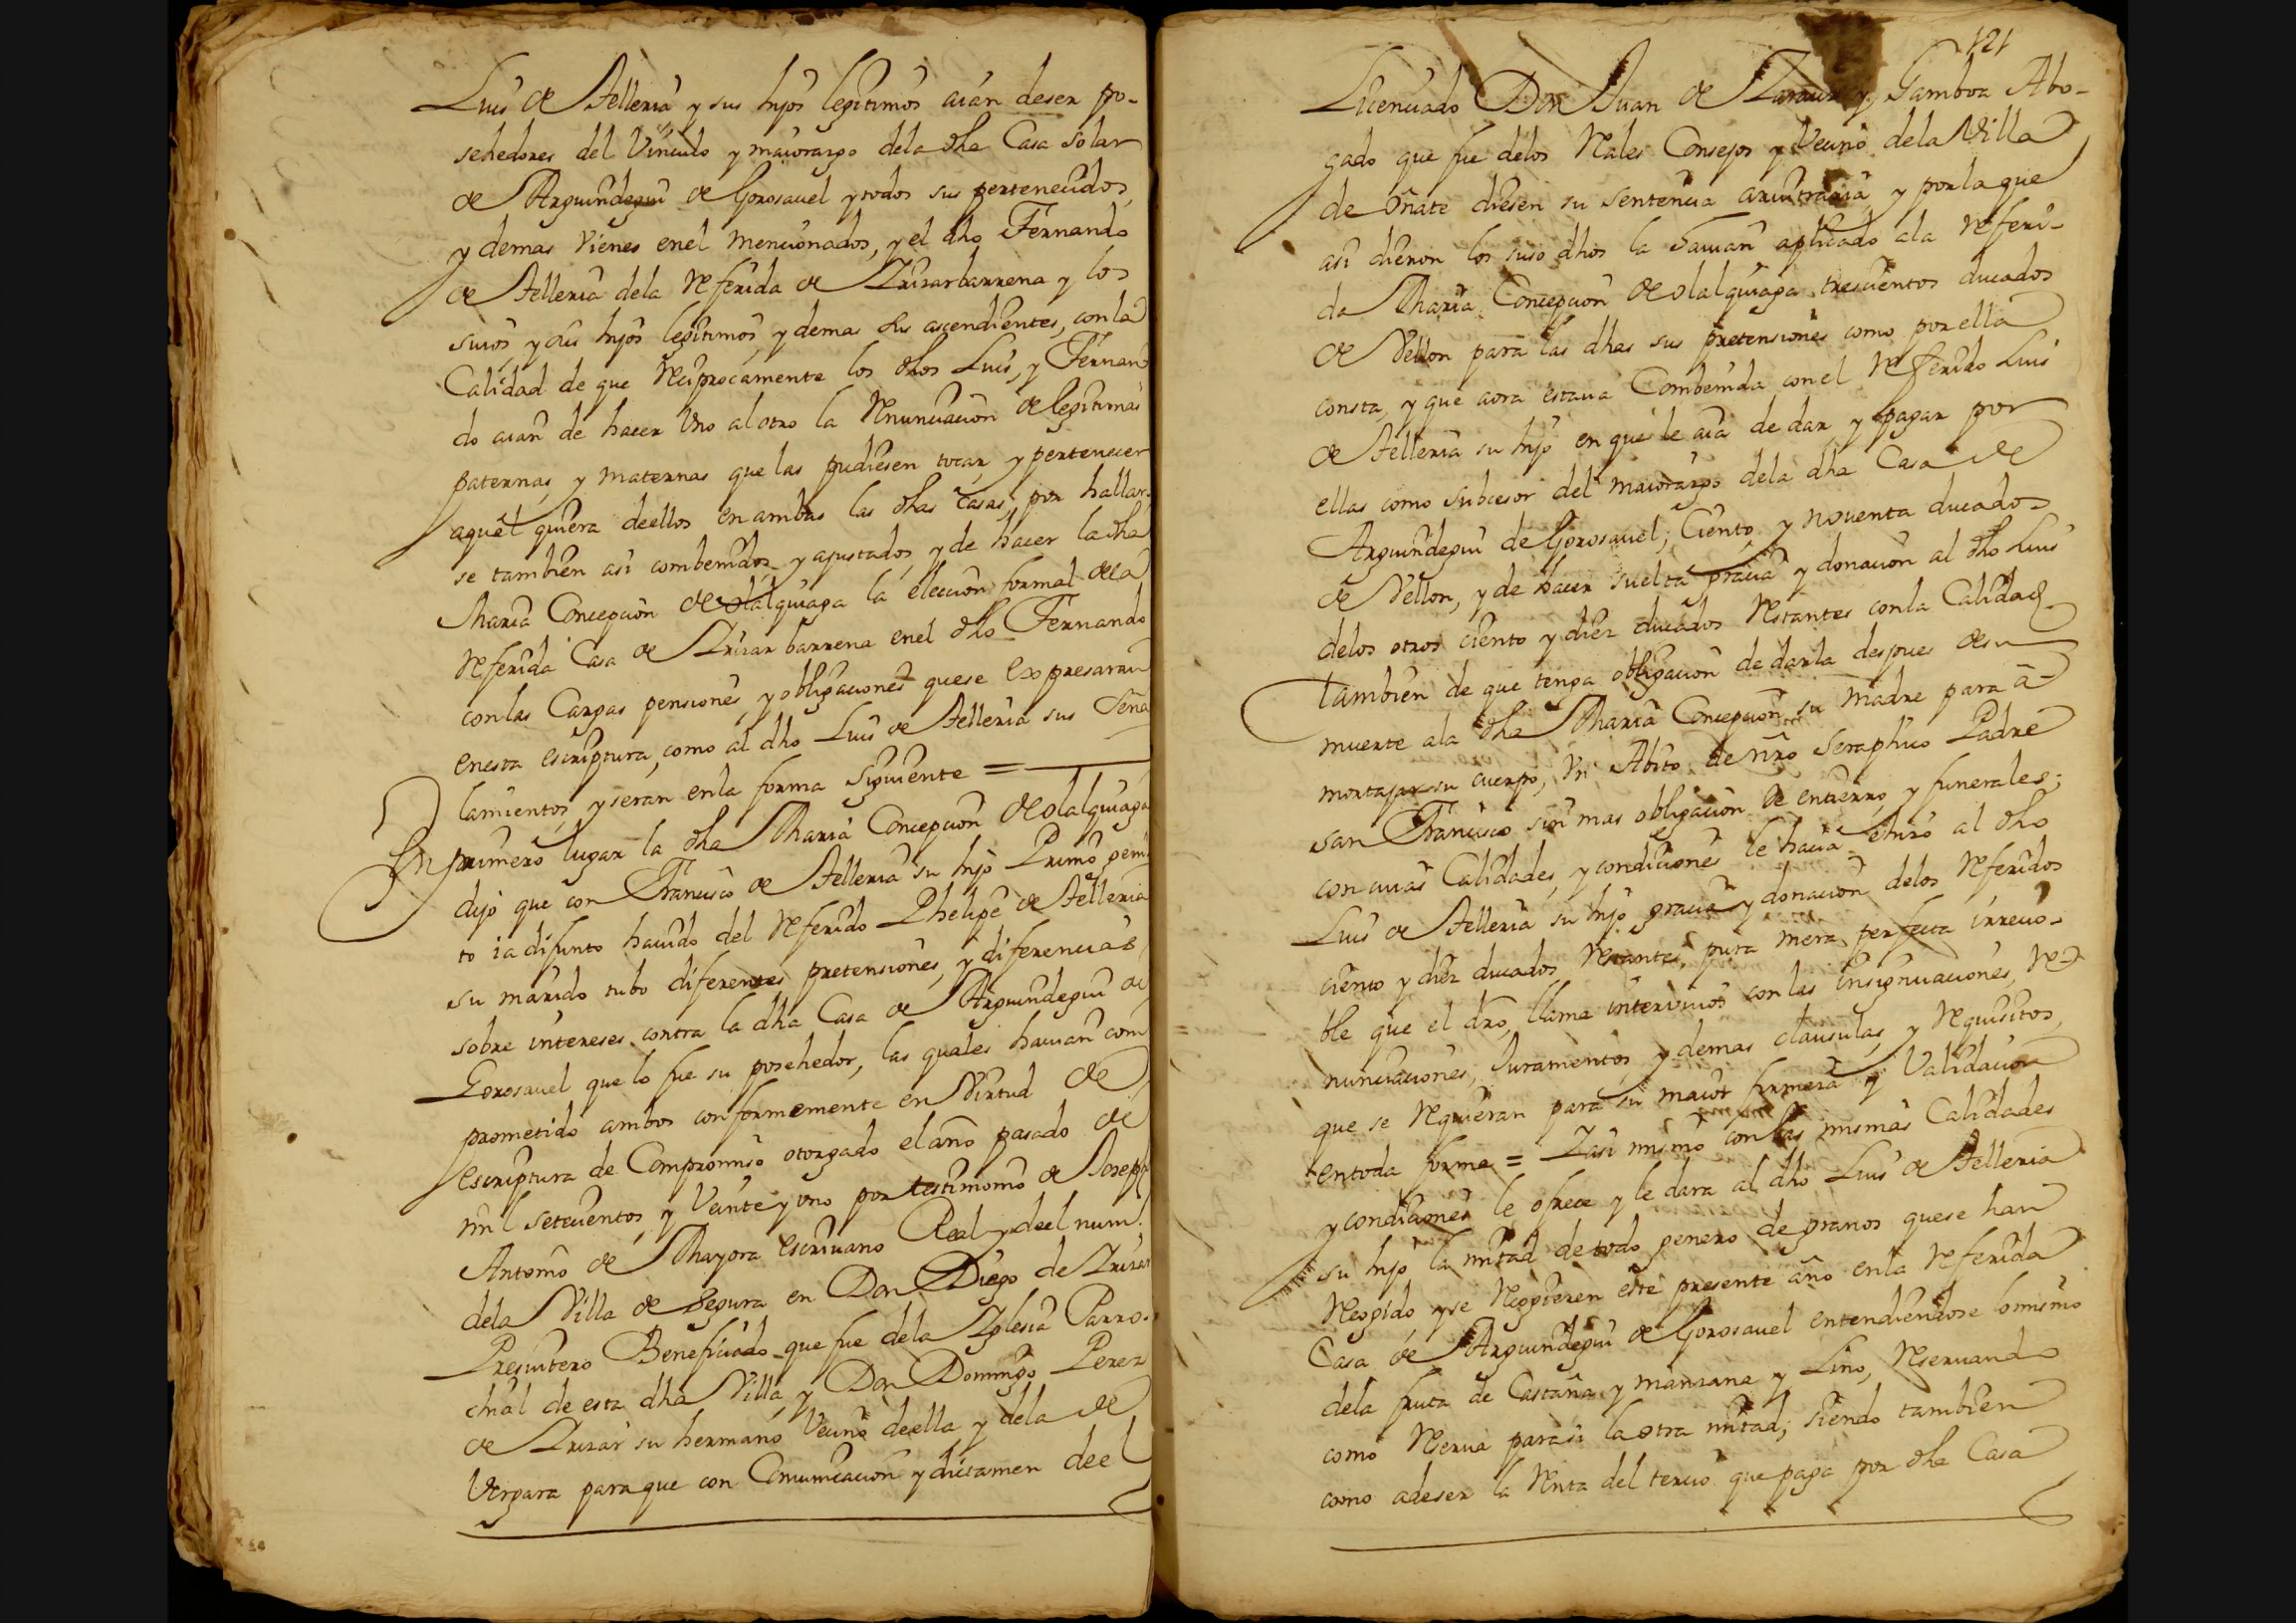 Luis de Atelleria y sus hijos legitimos auian deser po-
sehedores del Vinculo y maiorazgo dela dha Casa solar
de Arguindegui de Gorosauel y todos sus pertenecidos,
y demas vienes enel mencionados, y el dho Fernando
de Atelleria dela Referida de Yrizarbarrena y los
suios y sus hijos legitimos, y demas dessendientes, con la
Calidad de que Reciprocamente los dhos Luis, y Fernan
do auian de hacer Vno al otro la Renunciacion de legitimas
paternas, y maternas que las pudiesen tocar, y pertenecer
aqual quiera deellos en ambas las dhas Casas por hallar-
se tambien asi combenidos y ajustados, y de hacer la dha
Maria Concepcion de olalquiaga la eleccion formal dela
Referida Casa de Yrizar barrena enel dho Fernando
con las Cargas pensiones, y obligaciones que se Expresaran
enesta escriptura, como al dho Luis de Atelleria sus Seña
lamientos, y seran enla forma siguiente =
En primero lugar la dha Maria Concepcion de olalquiaga
dijo que con Francisco de Atelleria su hijo Primo geni
to ia difunto hauido del Referido Phelipe de Atelleria
su marido tubo diferentes pretensiones, y diferencias
sobre intereses contra la dha Casa de Arguindegui de
Gorosauel que lo fue su posehedor, las quales hauian com
prometido ambos conformemente en Virtud de
escriptura de Compromiso otorgado el año pasado de
mil setecientos y Veinte y vno por testimonio de Joseph
Antonio de Mayora escriuano Real y deel num.
dela Villa de Segura en Don Diego de Yrizar
Presuitero Beneficiado que fue dela Yglesia Parro-
chial de esta dha Villa, y Don Domingo Perez
de Yrizar su hermano Vecino deella y dela de
Vergara para que con Comunicacion y dictamen deel
121
Licenciado Don Juan de Zarauz y Gamboa Abo-
gado que fue delos Reales Consejos y Vecino dela Villa
de oñate diesen su sentencia aruitraria, y por la que
asi dieron los suso dhos la hauian aplicado ala Referi-
da Maria Concepcion de olalquiaga trescientos ducados
de Vellon para las dhas sus pretensiones como por ella
consta, y que aora estaua Combenida con el Referido Luis
de Atelleria su hijo en que le aia de dar, y pagar por
ellas como subcesor del maiorazgo dela dha Casa de
Arguindegui de Gorosauel; Ciento, y nouenta ducados
de Vellon, y de hacer suelta gracia y donacion al dho Luis
delos otros ciento y diez ducados Restantes con la Calidad
tambien de que tenga obligacion de darla despues desu
muerte ala dha Maria Concepcion su madre para a-
mortajar su cuerpo, Vn Abito de nro Seraphico Padre
san Francisco sin mas obligacion de entierro, y funerales;
con cuias Calidades, y condiciones le hacia e hizo al dho
Luis de Atelleria su hijo gracia y donacion delos Referidos
ciento y diez ducados Restantes, pura mera perfecta irreuo-
ble que el dro, llama intervivos con las insignuaciones, Re-
nunciaciones, Juramentos, y demas clausulas, y Requisitos,
que se Requieran para su maior firmeza y Validacion
entoda forma = Yasi mismo con las mismas Calidades
y condiciones le ofrece y le dara al dho Luis de Atelleria
su hijo la mitad de todo genero de granos que se han
Recogido, y se Recogieren este presente año enla Referida
Casa de Arguindegui de Gorosauel entendiendose lo mismo
dela fruta de Castaña y manzana y Lino, Reseruando
como Reserua para si la otra mitad; siendo tambien
como adeser la Renta del tercio que paga por dha Casa